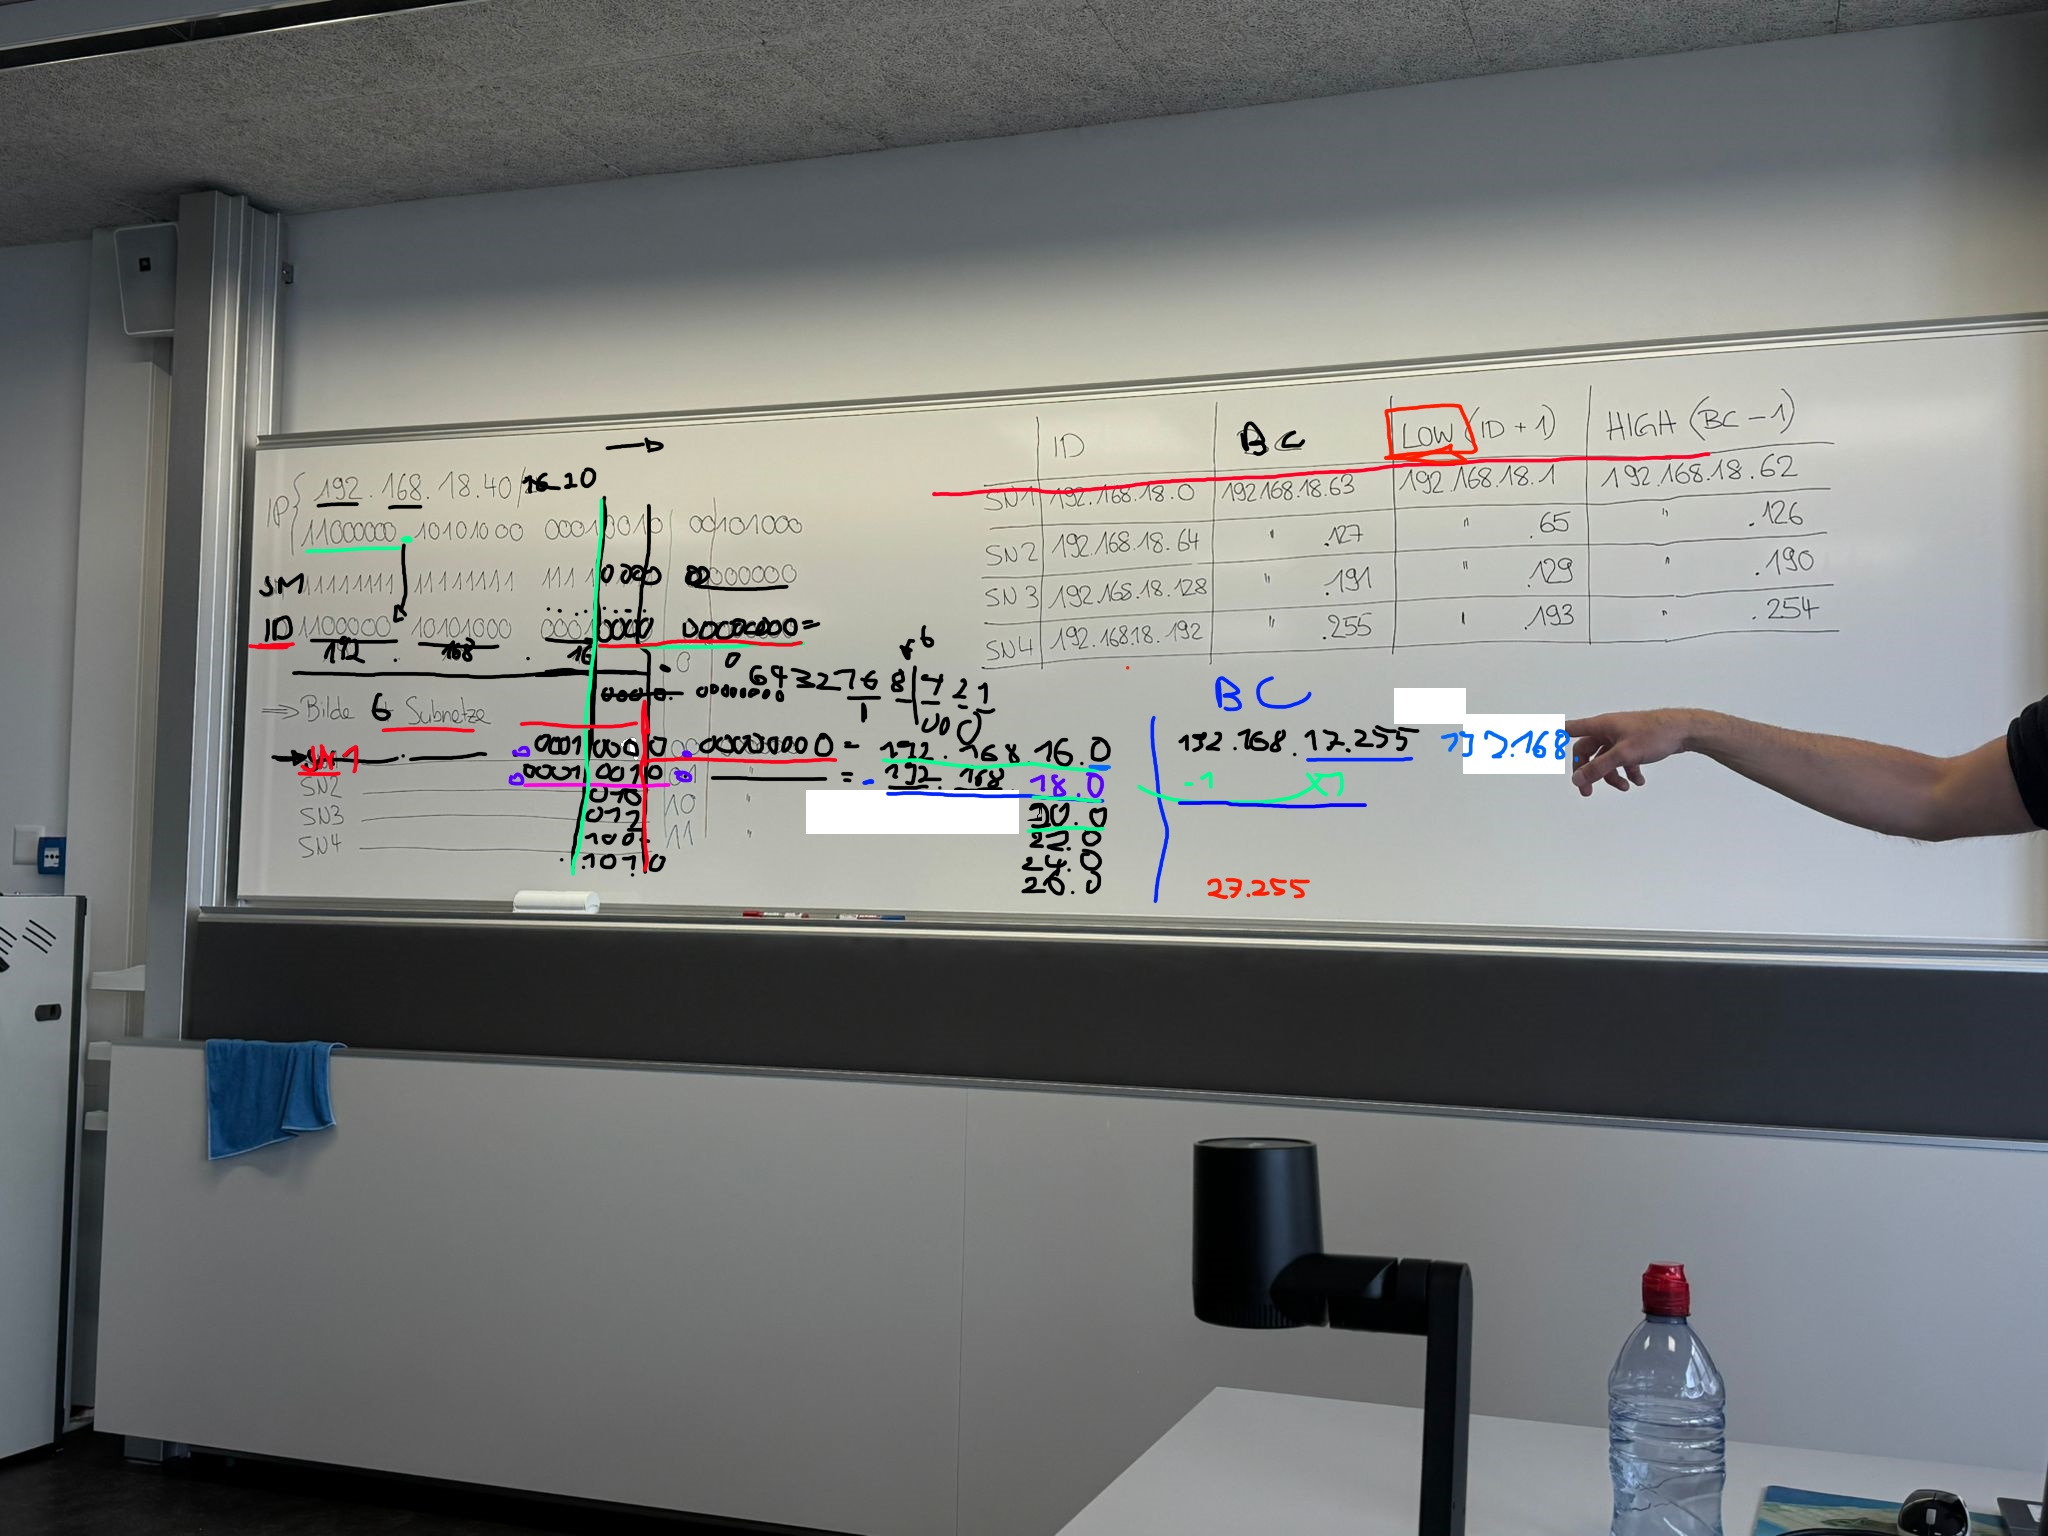 IP { 192.168.18.40/
11000000.10101000 00010010 00101000
SM 11111111 11111111 1111 0000 00000000
ID 11000000 10101000 00010000 00000000=
192 . 168 . 16
.0 0
64 32 16 8 4 2 1
⇒ Bilde 6 Subnetze
SN1 0001 0000 00000000 = 192.168.16.0
SN2 0001 0010 = 192.168 18.0
010 10 20.0
SN3 011 11 22.0
SN4 100 24.0
1010 26.0
ID BC LOW (ID+1) HIGH (BC-1)
SN1 192.168.18.0 192.168.18.63 192.168.18.1 192.168.18.62
SN2 192.168.18.64 " .127 " .65 " .126
SN3 192.168.18.128 " .191 " .129 " .190
SN4 192.16818.192 " .255 " .193 " .254
BC
192.168.17.255 192.168.
-1
27.255